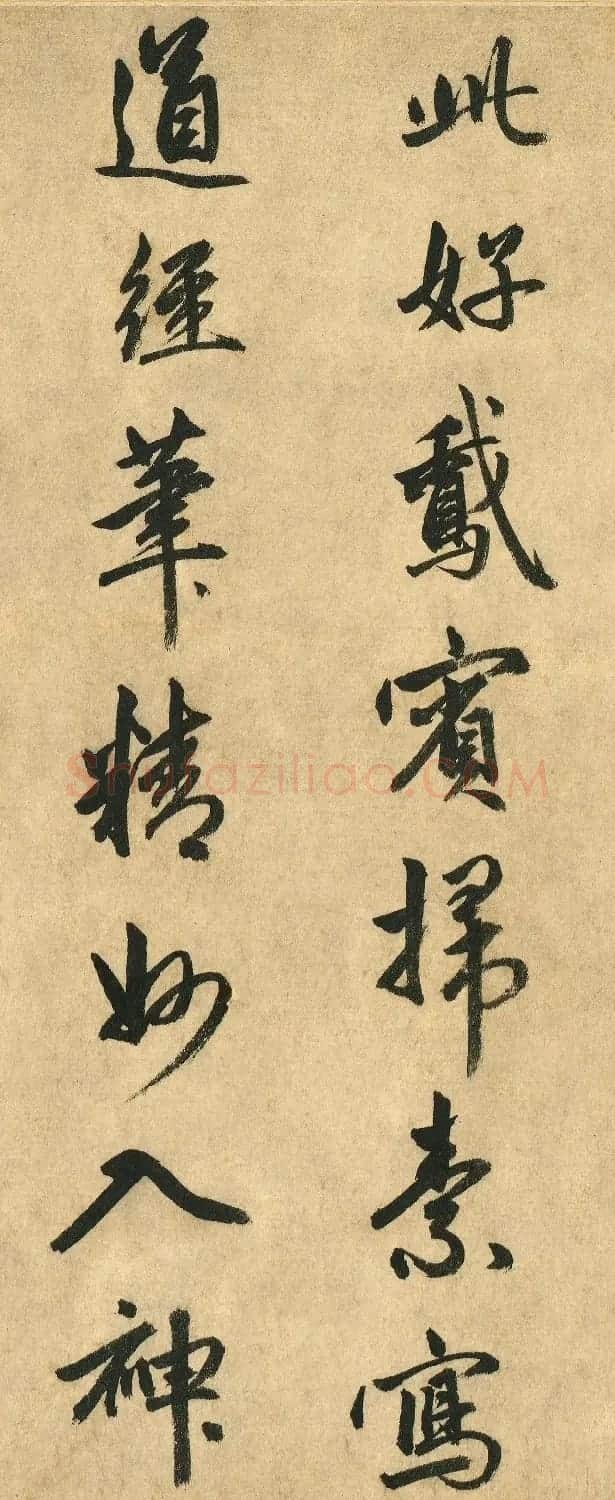 此好鵞賓掃素寫
道經筆精妙入神
Shufaziliao.COM